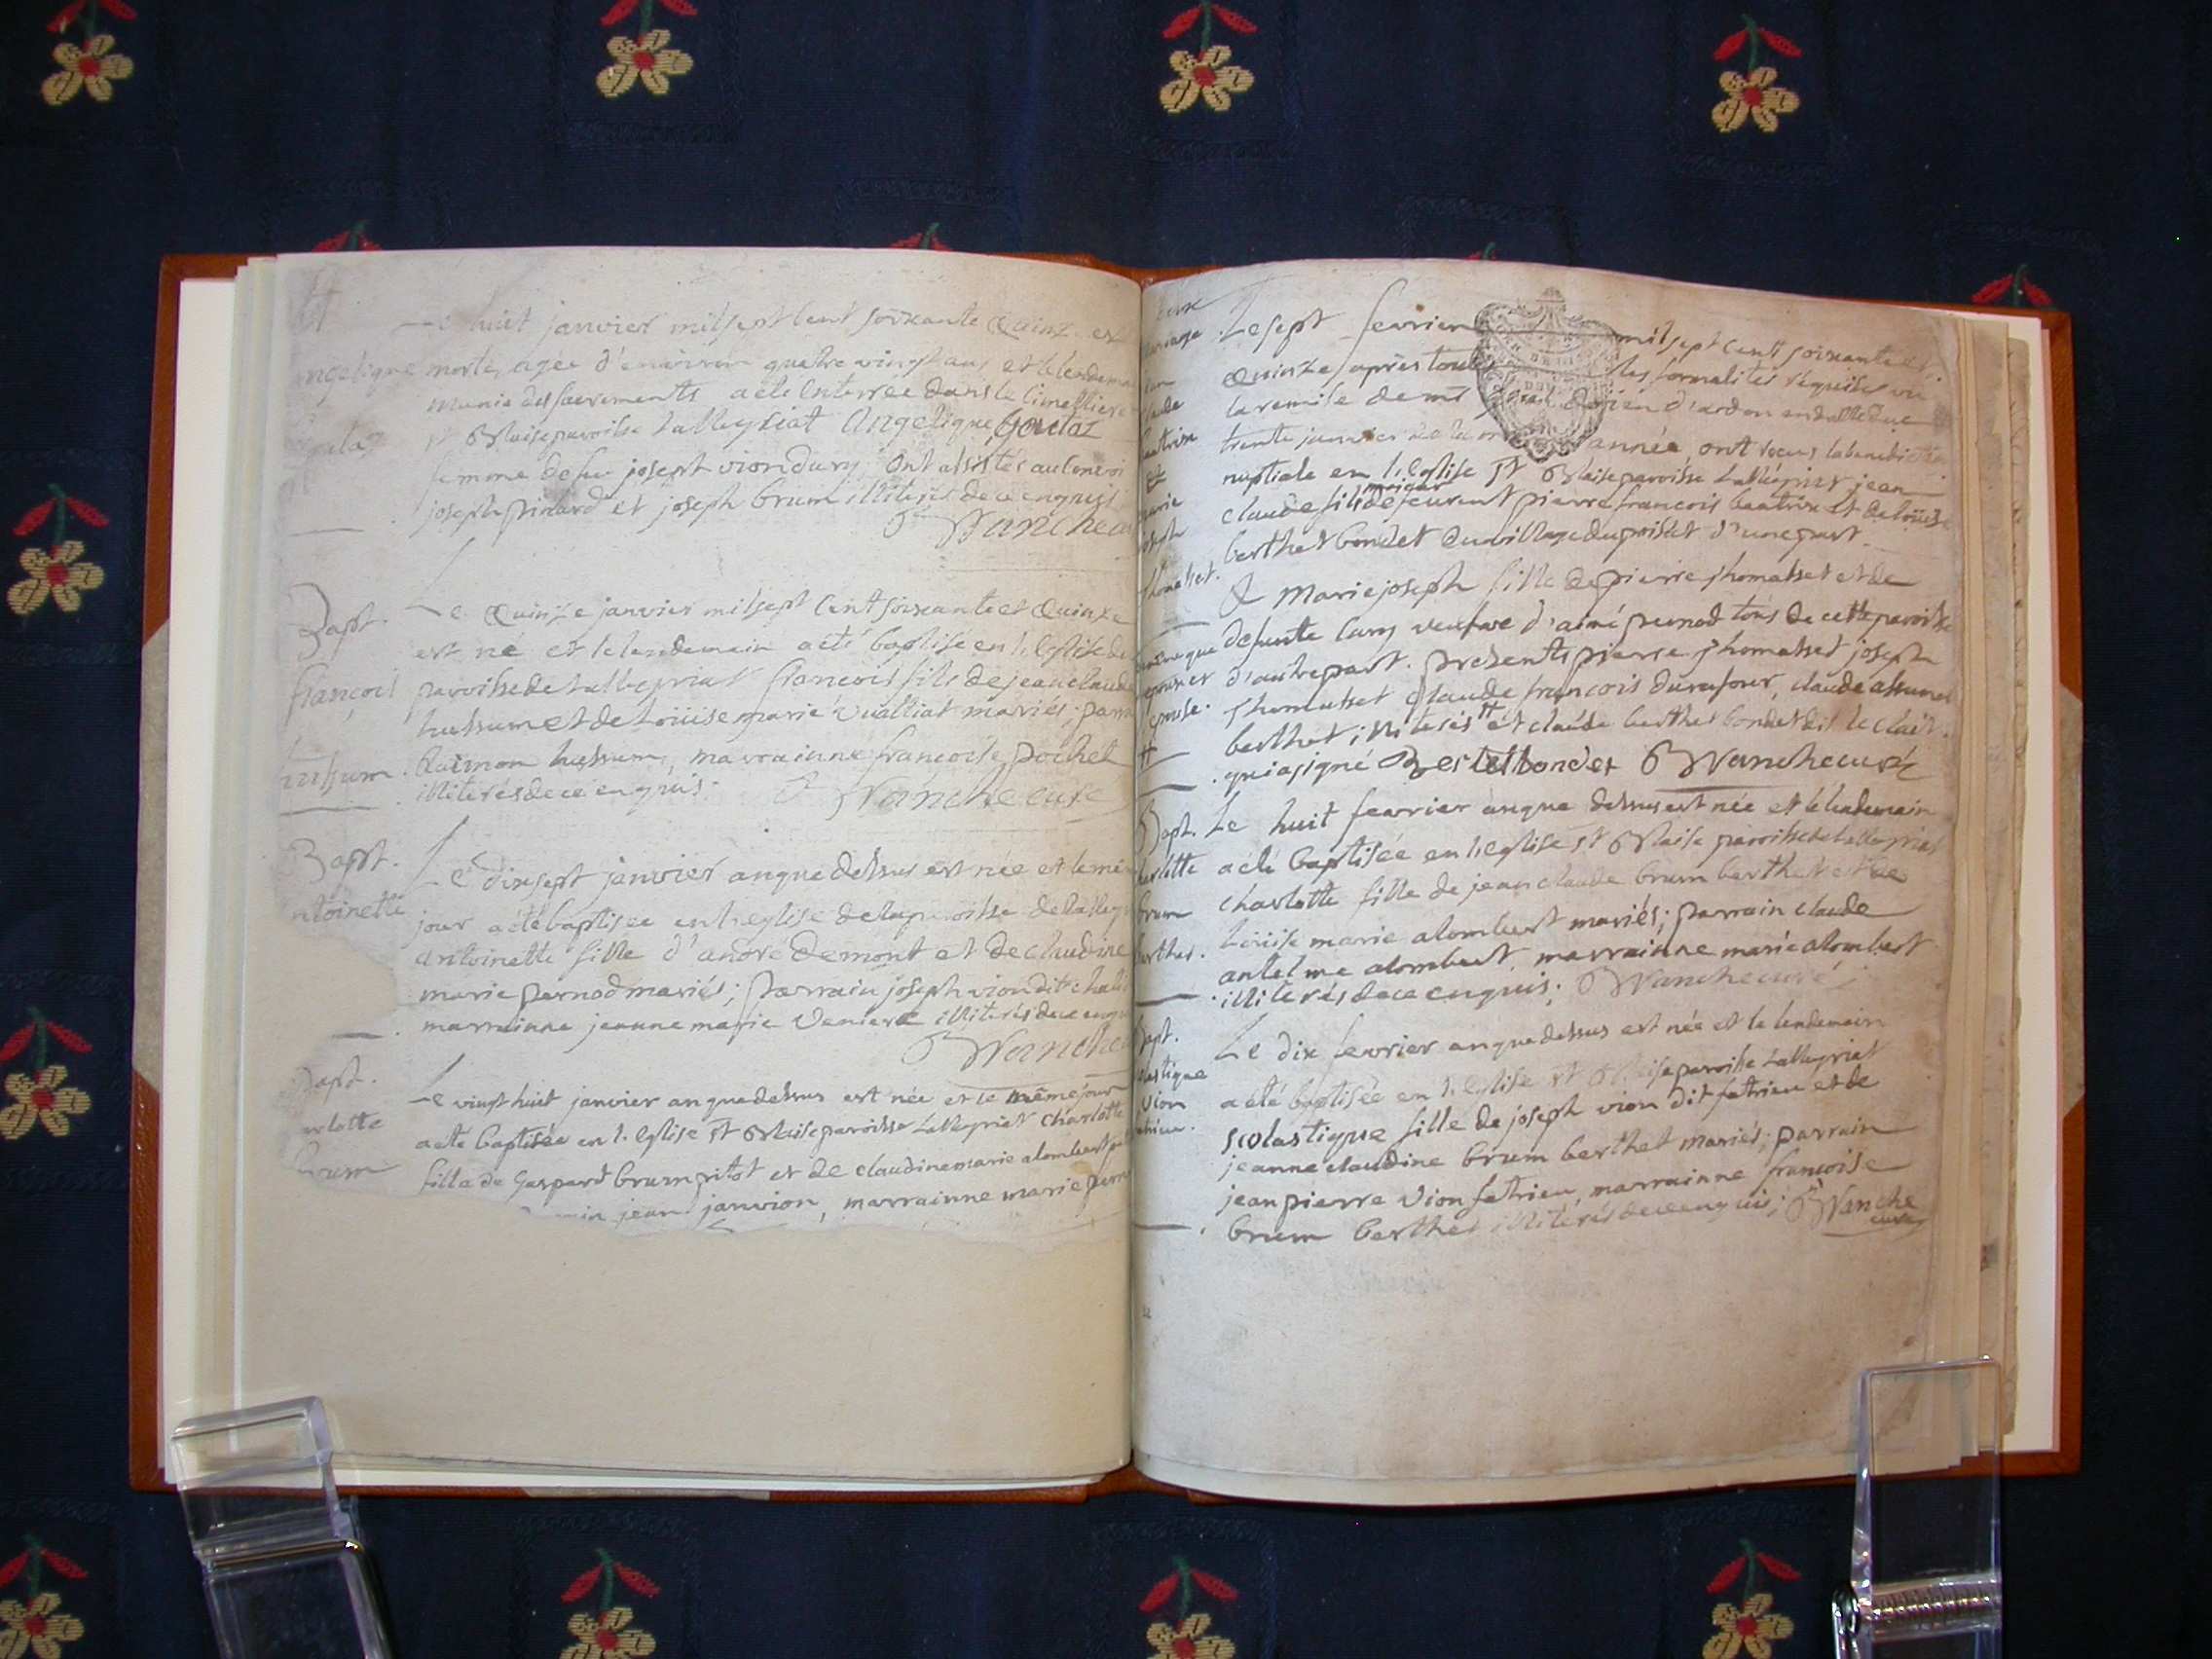 Le huit janvier mil sept cent soixante quinze est
morte, agée d'environ quatre vingt ans et le lendemain
munie des sacrements a été enterrée dans le cimetiere
st Blaise paroisse Lalleyriat Angelique Goulaz
femme de feu joseph vion dury; ont assistés au convoi
joseph pinard et joseph brum illiterés de ce enquis
Blanche
Bapt.
françois
hussum.
Le Quinze janvier mil sept cent soixante et Quinze
est né et le lendemain a été baptise en l'eglise de
paroisse de Lalleyriat françois fils de jean claude
hussum et de Loüise marie vualliat mariés;
hussum, marrainne françoise pochet
illiterés de ce enquis. Blanche curé
Bapt.
ntoinette
Le dix sept janvier an que dessus est née et le même
jour a été baptisee en l'eglise de la paroisse de
antoinette fille d'andré demont et de claudine
marie pernod mariés; parrain joseph vion dit
marrainne jeanne marie illiterés de ce enquis
Blanche
Bapt.
arlotte
brum
Le vingt huit janvier an que dessus est née et le même jour
a été baptisée en l'eglise st Blaise paroisse Lalleyriat charlotte
fille de Gaspard brum pitot et de claudine marie alombert
jean janvion, marrainne marie
Le sept fevrier mil sept cent soixante et
Quinze, après toutes les formalités réquises vu
la remise de d'ardon en datte du
trente janvier année, ont recus la benediction
nuptiale en l'eglise st Blaise paroisse Lalleyriat jean
claude fils majeur de feurent pierre françois beatrix et de loüise
berthet bondet du village du poisat d'une part
& Marie joseph fille de pierre thomasset et de
defunte veufve d'aimé pernod tous de cette paroisse
d'autre part. presents pierre thomasset joseph
thomasset claude françois durafour, claude
berthet illiterés et claude berthet bondet dit le clair
qui a signé Bertet bondet Blanche curé
Bapt.
arlotte
brum
berthet.
Le huit fevrier an que dessus est née et le lendemain
a été baptisée en l'eglise st Blaise paroisse de Lalleyriat
charlotte fille de jean claude brum berthet et de
Loüise marie alombert mariés; parrain claude
antelme alombert, marrainne marie alombert
illiterés de ce enquis; Blanche curé
Bapt.
olastique
vion
Le dix fevrier an que dessus est née et le lendemain
a été baptisée en l'eglise st Blaise paroisse Lalleyriat
scolastique fille de joseph vion dit fatrieu et de
jeanne claudine brum berthet mariés; parrain
jean pierre vion fatrieu, marrainne françoise
brum berthet illiterés de ce enquis; Blanche
curé